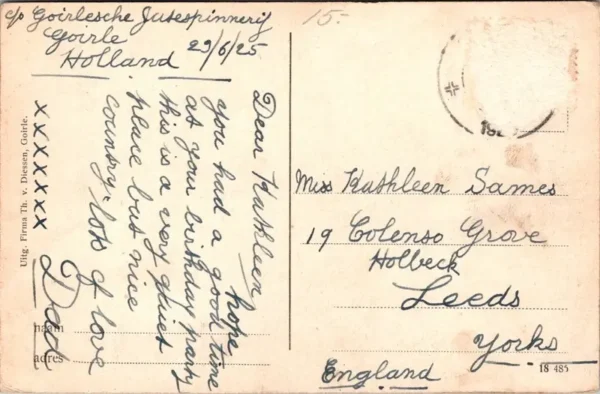 c/o Goirlesche Jutespinnerij
Goirle
Holland 29/6/25
Dear Kathleen
hope
you had a good time
at your birthday party
this is a very quiet
place but nice
country. lots of love
Dad
xxxxxxx
Uitg. Firma Th. v. Diessen, Goirle.
naam
adres
15-
192
Miss Kathleen Sames
19 Colenso Grove
Holbeck
Leeds
Yorks
England
18 485